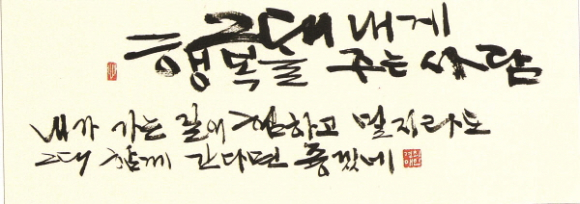 그대 내게
행복을 주는 사람
내가 가는 길이 험하고 멀지라도
그대 함께 간다면 좋겠네